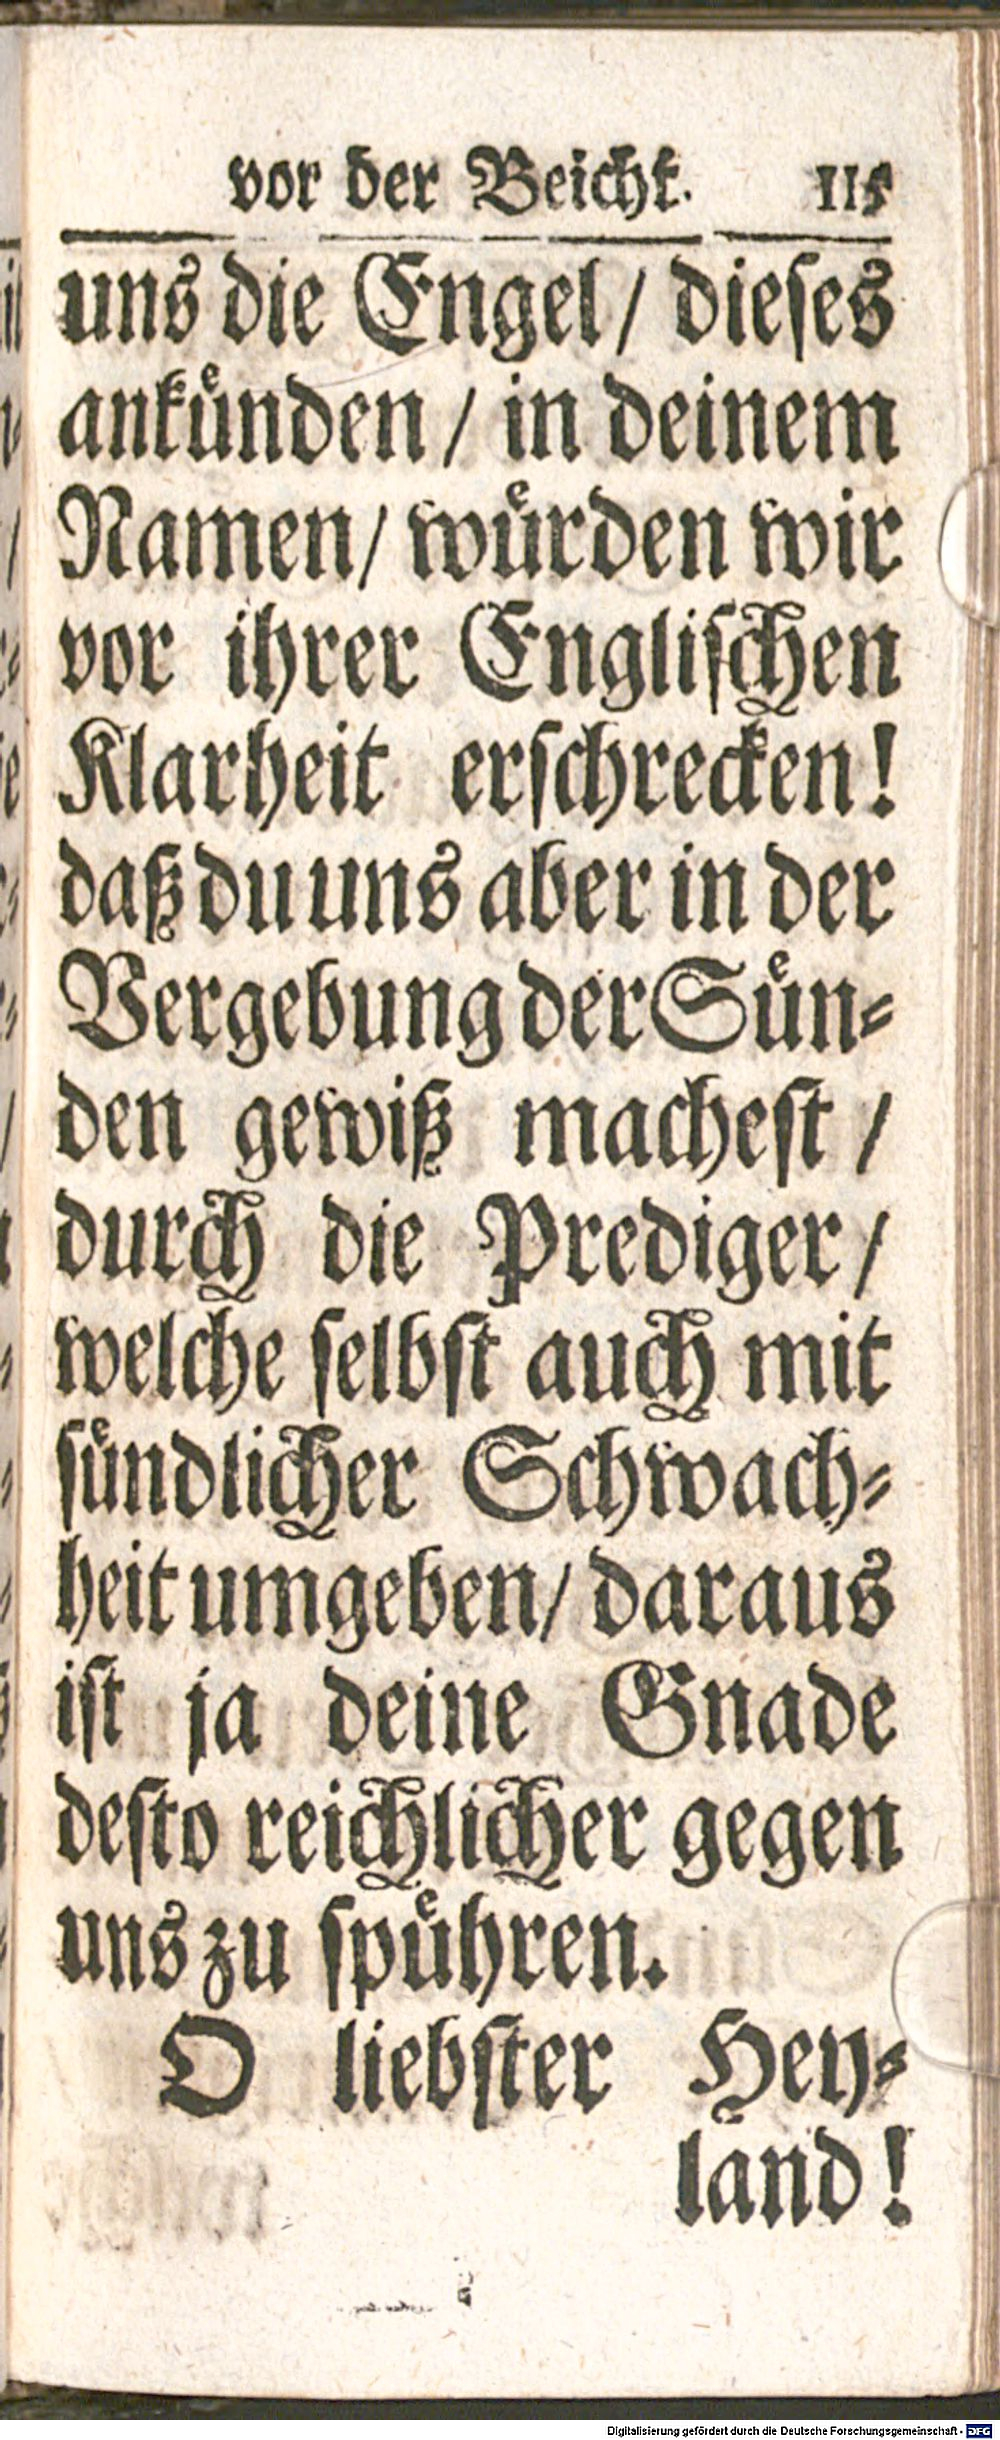 vor der Beicht. 115
uns die Engel / dieses
ankuͤnden / in deinem
Namen / wuͤrden wir
vor ihrer Englischen
Klarheit erschrecken!
daß du uns aber in der
Vergebung der Suͤn-
den gewiß machest /
durch die Prediger /
welche selbst auch mit
suͤndlicher Schwach-
heit umgeben / daraus
ist ja deine Gnade
desto reichlicher gegen
uns zu spuͤhren.
O liebster Hey-
land!
Digitalisierung gefördert durch die Deutsche Forschungsgemeinschaft - DFG